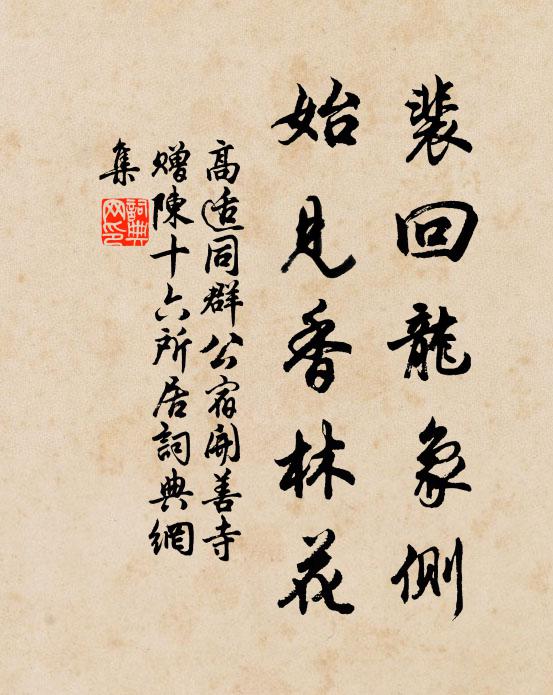 裴回龍象側
始見香林花
高适同群公宿開善寺
贈陳十六所居詞典網
集
詞典
网印